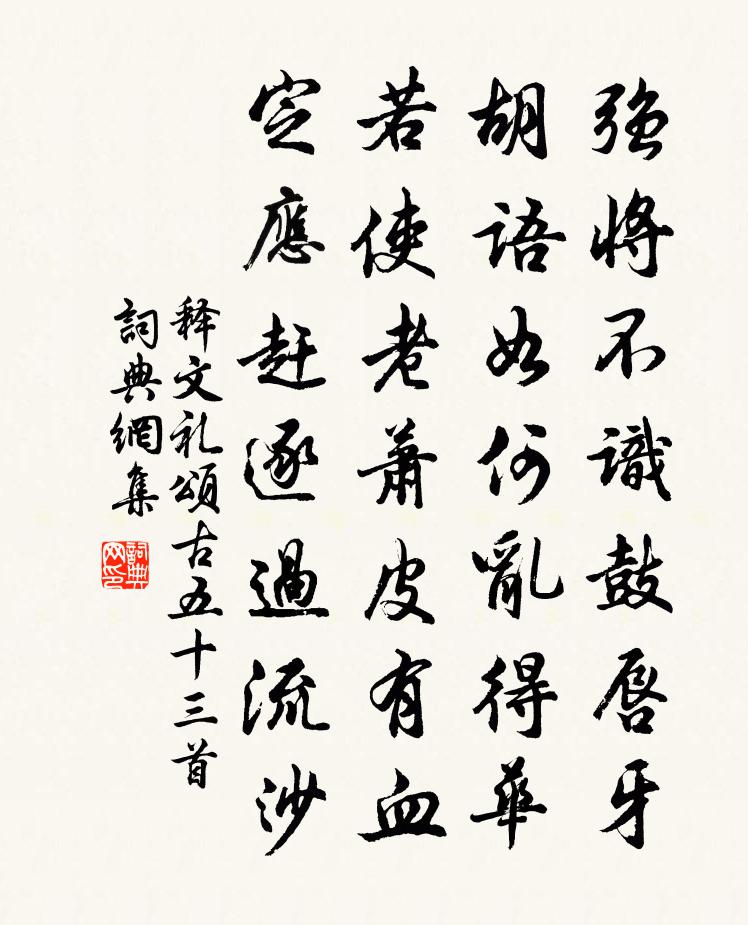 強將不識鼓唇牙
胡語如何亂得華
若使老蕭皮有血
定應赶逐過流沙
释文礼頌古五十三首
詞典網集
詞典網印